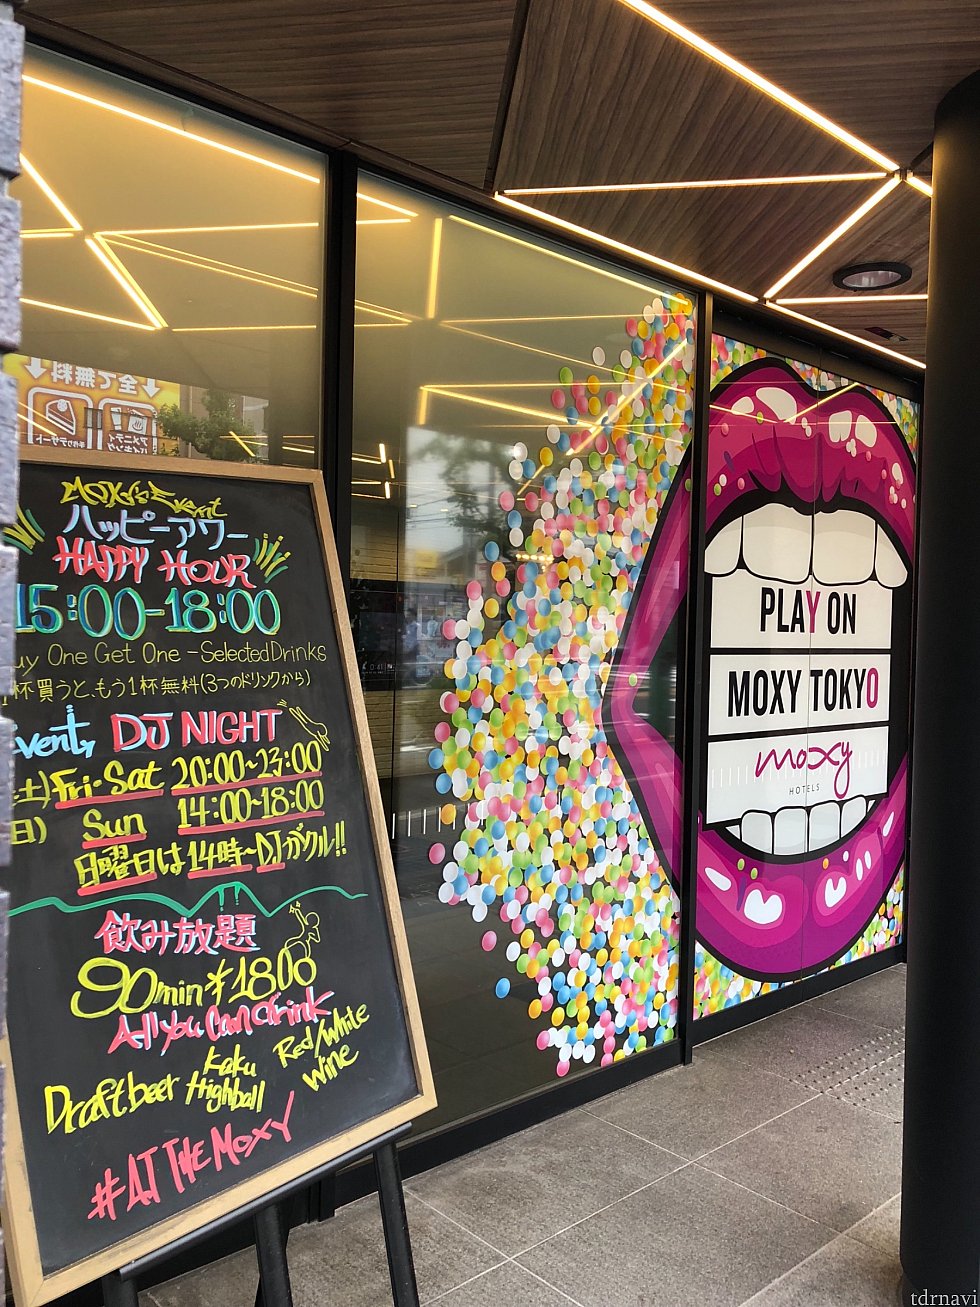 全て無料
手作りデザート
アメニティ
バイキング
MOXY'S Event
ハッピーアワー
HAPPY HOUR
15:00-18:00
uy One Get One - Selected Drinks
1杯買うと、もう1杯無料(3つのドリンクから)
vent, DJ NIGHT
土) Fri・Sat 20:00~23:00
日) Sun 14:00~18:00
日曜日は14時~DJがクル!!
飲み放題
90min ¥1800
All you can drink
Draft beer Kaku Highball Red/White wine
#AT THE MOXY
PLAY ON
MOXY TOKYO
moxy
HOTELS
tdrnavi